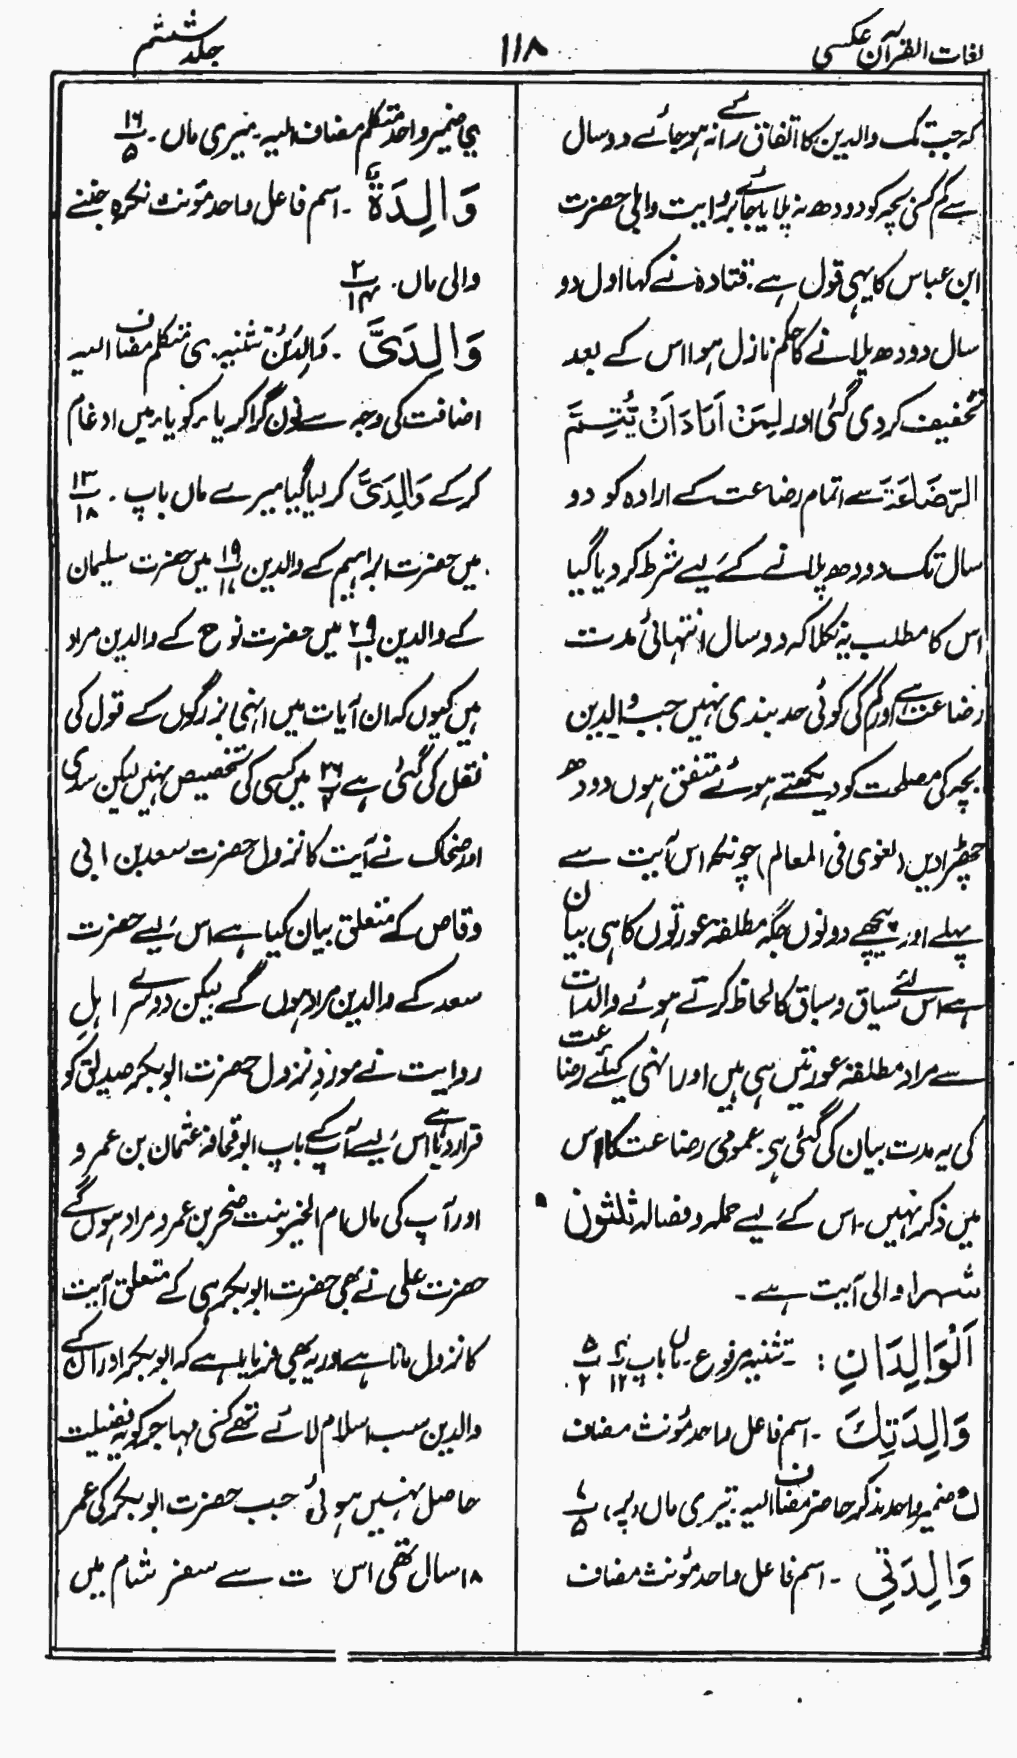 لغات القرآن عکسی
۱۱۸
جلد ششم
کہ جب تک والدین کا اتفاق رائے نہ ہو جائے دو سال
سے کم کسی بچہ کو دودھ نہ پلایا جائے بروایت والبی حضرت
ابن عباس کا یہی قول ہے۔ قتادہ نے کہا اول دو
سال دودھ پلانے کا حکم نازل ہوا اس کے بعد
تخفیف کر دی گئی اور لِمَنْ اَرَادَ اَنْ يُّتِمَّ
الرَّضَاعَةَ سے اتمام رضاعت کے ارادہ کو دو
سال تک دودھ پلانے کے لیے شرط کر دیا گیا
اس کا مطلب یہ نکلا کہ دو سال انتہائی مدت
رضاعت ہے اور کم کی کوئی حد بندی نہیں جب والدین
بچہ کی مصلحت کو دیکھتے ہوئے متفق ہوں دودھ
چھڑا دیں (بغوی فی المعالم) چونکہ اس آیت سے
پہلے اور پیچھے دونوں جگہ مطلقہ عورتوں کا ہی بیان
ہے اس لئے سیاق و سباق کا لحاظ کرتے ہوئے والدات
سے مراد مطلقہ عورتیں ہی ہیں اور انہی کیلئے رضاعت
کی یہ مدت بیان کی گئی ہے عمومی رضاعت کا اس
میں ذکر نہیں۔ اس کے لیے حملہ و فصالہ ثلثون
شہرا والی آیت ہے۔
اَلْوَالِدَانِ : ۔ تثنیہ مرفوع۔ ماں باپ ۱۲ ۵/۲
وَالِدَتِكَ ۔ اسم فاعل واحد مؤنث مضاف
ك ضمیر واحد مذکر حاضر مضاف الیہ۔ تیری ماں (پر) ۷/۵
وَالِدَتِی ۔ اسم فاعل واحد مؤنث مضاف
ي ضمیر واحد متکلم مضاف الیہ۔ میری ماں ۔ ۱۶/۵
وَالِدَةٌ ۔ اسم فاعل واحد مؤنث نکرہ جننے
والی ماں۔ ۲/۱۴
وَالِدَیَّ ۔ وَالِدَیْنِ تثنیہ۔ ی متکلم مضاف الیہ
اضافت کی وجہ سے نون گرا کر یاء کو یاء میں ادغام
کر کے وَالِدَیَّ کر لیا گیا میرے ماں باپ ۔ ۱۳/۱۸
میں حضرت ابراہیم کے والدین ۱۹ میں حضرت سلیمان
کے والدین ۲۹ میں حضرت نوح کے والدین مراد
ہیں کیوں کہ ان آیات میں انہی بزرگوں کے قول کی
نقل کی گئی ہے ۲۶/۲ میں کسی کی تخصیص نہیں لیکن سدی
اور ضحاک نے آیت کا نزول حضرت سعد بن ابی
وقاص کے متعلق بیان کیا ہے اس لیے حضرت
سعد کے والدین مراد ہوں گے لیکن دوسرے اہلِ
روایت نے موردِ نزول حضرت ابوبکر صدیق کو
قرار دیا ہے اس لیے آپ کے باپ ابوقحافہ عثمان بن عمرو
اور آپ کی ماں ام الخیر بنت صخر بن عمرو مراد ہوں گے
حضرت علی نے بھی حضرت ابوبکر ہی کے متعلق آیت
کا نزول مانا ہے اور یہ بھی فرمایا ہے کہ ابوبکر اور ان کے
والدین سب اسلام لائے تھے کسی مہاجر کو یہ فضیلت
حاصل نہیں ہوئی جب حضرت ابوبکر کی عمر
۱۸ سال تھی اس ت سے سفر شام میں